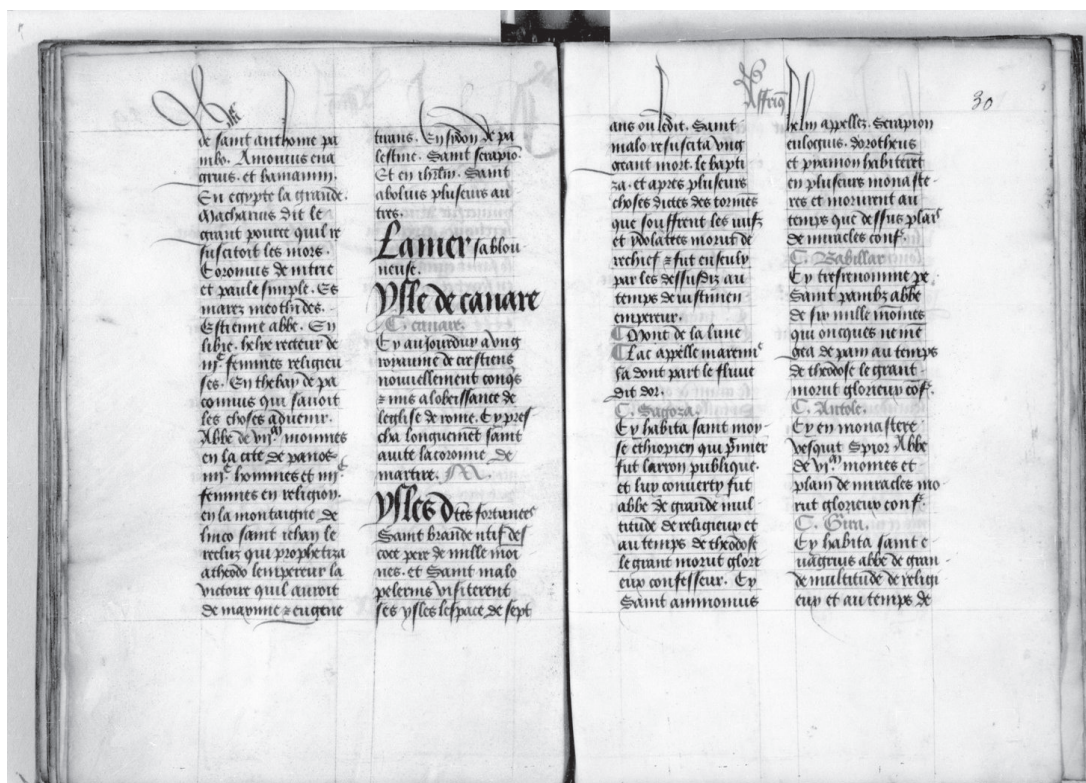 de saint anthoine pa
mbo. Amonius eua
grius. et bamanim.
En egypte la grande.
Macharius dit le
grant pource quil re
suscitoit les mors.
et paule simple. Es
marez meothides.
Estienne abbe. En
libie. helye recteur de
iijc femmes religieu
ses. En thebay de pa
comius qui sauoit
les choses aduenir.
Abbe de vijm moinnes
en la cite de panos
hommes et
femmes en religion.
en la montaigne de
linco saint iehan le
recluz qui prophetiza
atheodo lempereur la
victoire quil auroit
de mayme z eugene
tirans. En sydon de pa
lestine. Saint serapio.
Et en ihrlm. Saint
abolius pluseurs au
tres.
Lamer sablon
neuse.
Ysle de canare
C. canare.
Cy auiourduy a vng
royaume de crestiens
nouuellement conqs
z mis a lobeissance de
leglise de rome. Cy pres
cha longuemet saint
auite la coronne de
martire. M.
Ysles dtes fortunees
Saint brande natif des
coce pere de mille moi
nes. et Saint malo
pelerins visiterent
ses ysles lespace de sept
Affriq
30
ans ou ledit. Saint
malo resuscita vng
geant mort. le bapti
za. et apres pluseurs
choses dictes des tormes
que souffrent les iuifz
et ydolatres morut de
rechief z fut enseuly
par les dessusdiz au
temps de iustinien
empereur.
Mont de la lune
Lac appelle
sa dont part le fluue
dit dor.
C. Sagoza.
Cy habita saint moy
se ethiopien qui pmier
fut larron publique.
et luy conuerty fut
abbe de grande mul
titude de religieux et
au temps de theodose
le grant morut glori
eux confesseur. Cy
Saint ammonius
helm appellez. Serapion
eulogius. dorotheus
et pyamon habiteret
en pluseurs monaste
res et morurent au
temps que dessus plais
de miracles conf.
C. Babillar
Cy tresrenomme pe
Saint pambz abbe
de six mille moines
qui oncques ne me
gea de pain au temps
de theodose le grant
morut glorieux cof.
C. Antole.
Cy en monastere
vesquit Spior Abbe
de vjm moines et
plain de miracles mo
rut glorieux conf.
C. Gira.
Cy habita saint e
uagrius abbe de gran
de multitude de religi
eux et au temps de